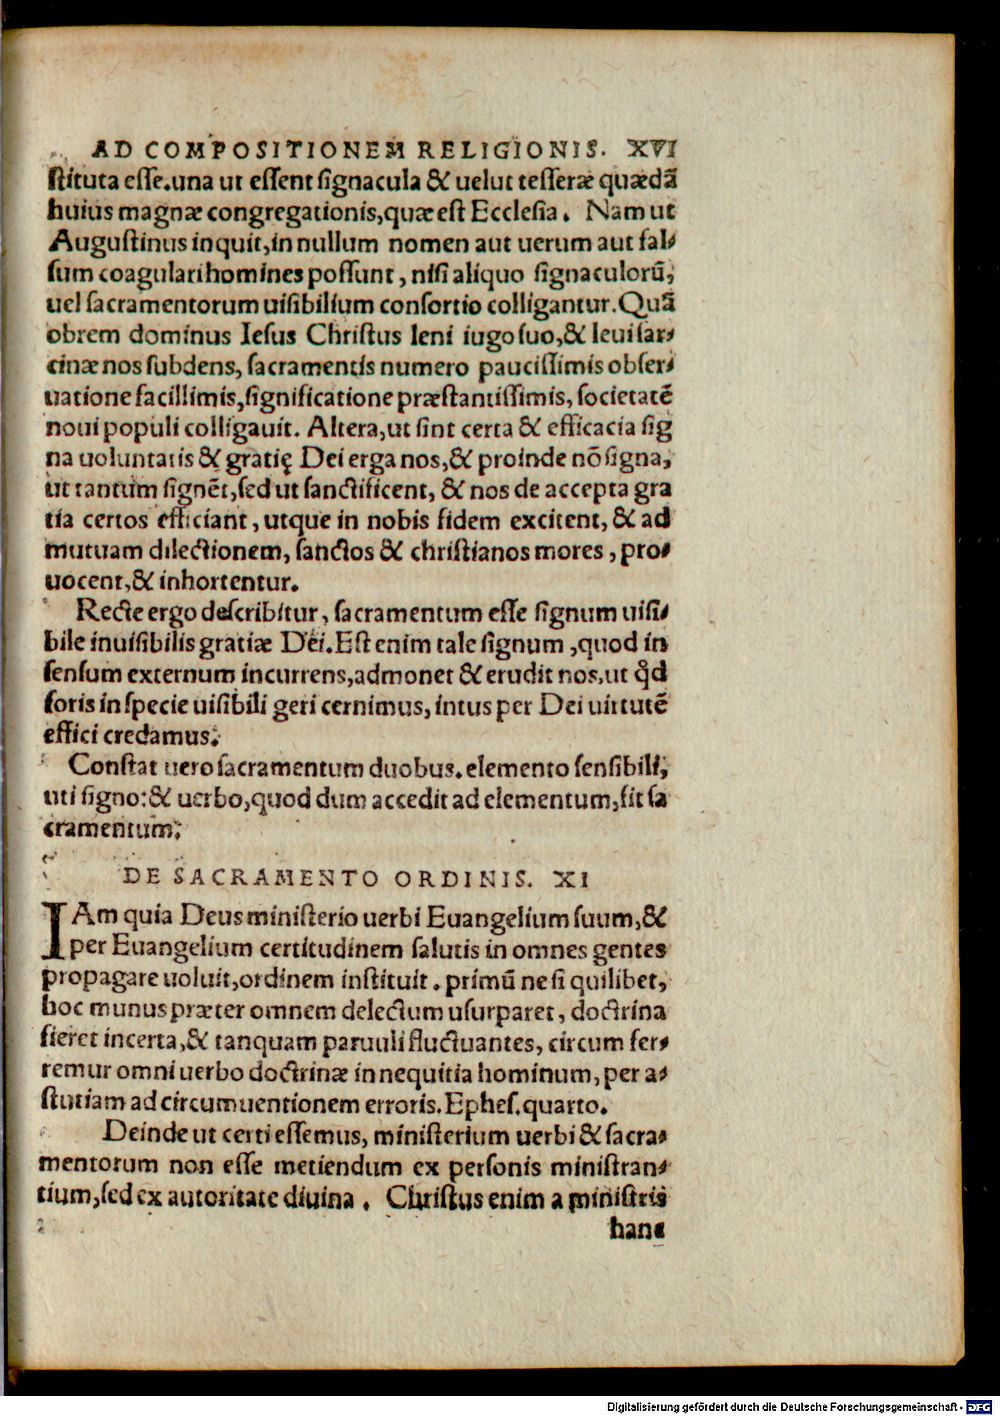 AD COMPOSITIONEM RELIGIONIS. XVI
ſtituta eſſe.una ut eſſent ſignacula & uelut teſſeræ quædã
huius magnæ congregationis,quæ eſt Eccleſia. Nam ut
Auguſtinus inquit,in nullum nomen aut uerum aut fal⸗
ſum coagulari homines poſſunt, niſi aliquo ſignaculorũ,
uel ſacramentorum uiſibilium conſortio colligantur.Quã
obrem dominus Ieſus Chriſtus leni iugo ſuo,& leui ſar⸗
cinæ nos ſubdens, ſacramentis numero pauciſſimis obſer⸗
uatione facillimis,ſignificatione præſtantiſſimis, ſocietatẽ
noui populi colligauit. Altera,ut ſint certa & efficacia ſig
na uoluntatis & gratię Dei erga nos,& proinde nõ ſigna,
ut tantum ſignẽt,ſed ut ſanctificent, & nos de accepta gra
tia certos efficiant, utque in nobis fidem excitent, & ad
mutuam dilectionem, ſanctos & chriſtianos mores, pro⸗
uocent,& inhortentur.
Recte ergo deſcribitur, ſacramentum eſſe ſignum uiſi⸗
bile inuiſibilis gratiæ Dei.Eſt enim tale ſignum,quod in
ſenſum externum incurrens,admonet & erudit nos,ut qd̃
foris in ſpecie uiſibili geri cernimus, intus per Dei uirtutẽ
effici credamus.
Conſtat uero ſacramentum duobus.elemento ſenſibili,
uti ſigno:& uerbo,quod dum accedit ad elementum,fit ſa
cramentum.
DE SACRAMENTO ORDINIS. XI
IAm quia Deus miniſterio uerbi Euangelium ſuum,&
per Euangelium certitudinem ſalutis in omnes gentes
propagare uoluit,ordinem inſtituit. primũ ne ſi quilibet,
hoc munus præter omnem delectum uſurparet, doctrina
fieret incerta,& tanquam paruuli fluctuantes, circum fer⸗
remur omni uerbo doctrinæ in nequitia hominum, per a⸗
ſtutiam ad circumuentionem erroris.Epheſ.quarto.
Deinde ut certi eſſemus, miniſterium uerbi & ſacra⸗
mentorum non eſſe metiendum ex perſonis miniſtran⸗
tium,ſed ex autoritate diuina. Chriſtus enim a miniſtris
hanc
Digitalisierung gefördert durch die Deutsche Forschungsgemeinschaft - DFG